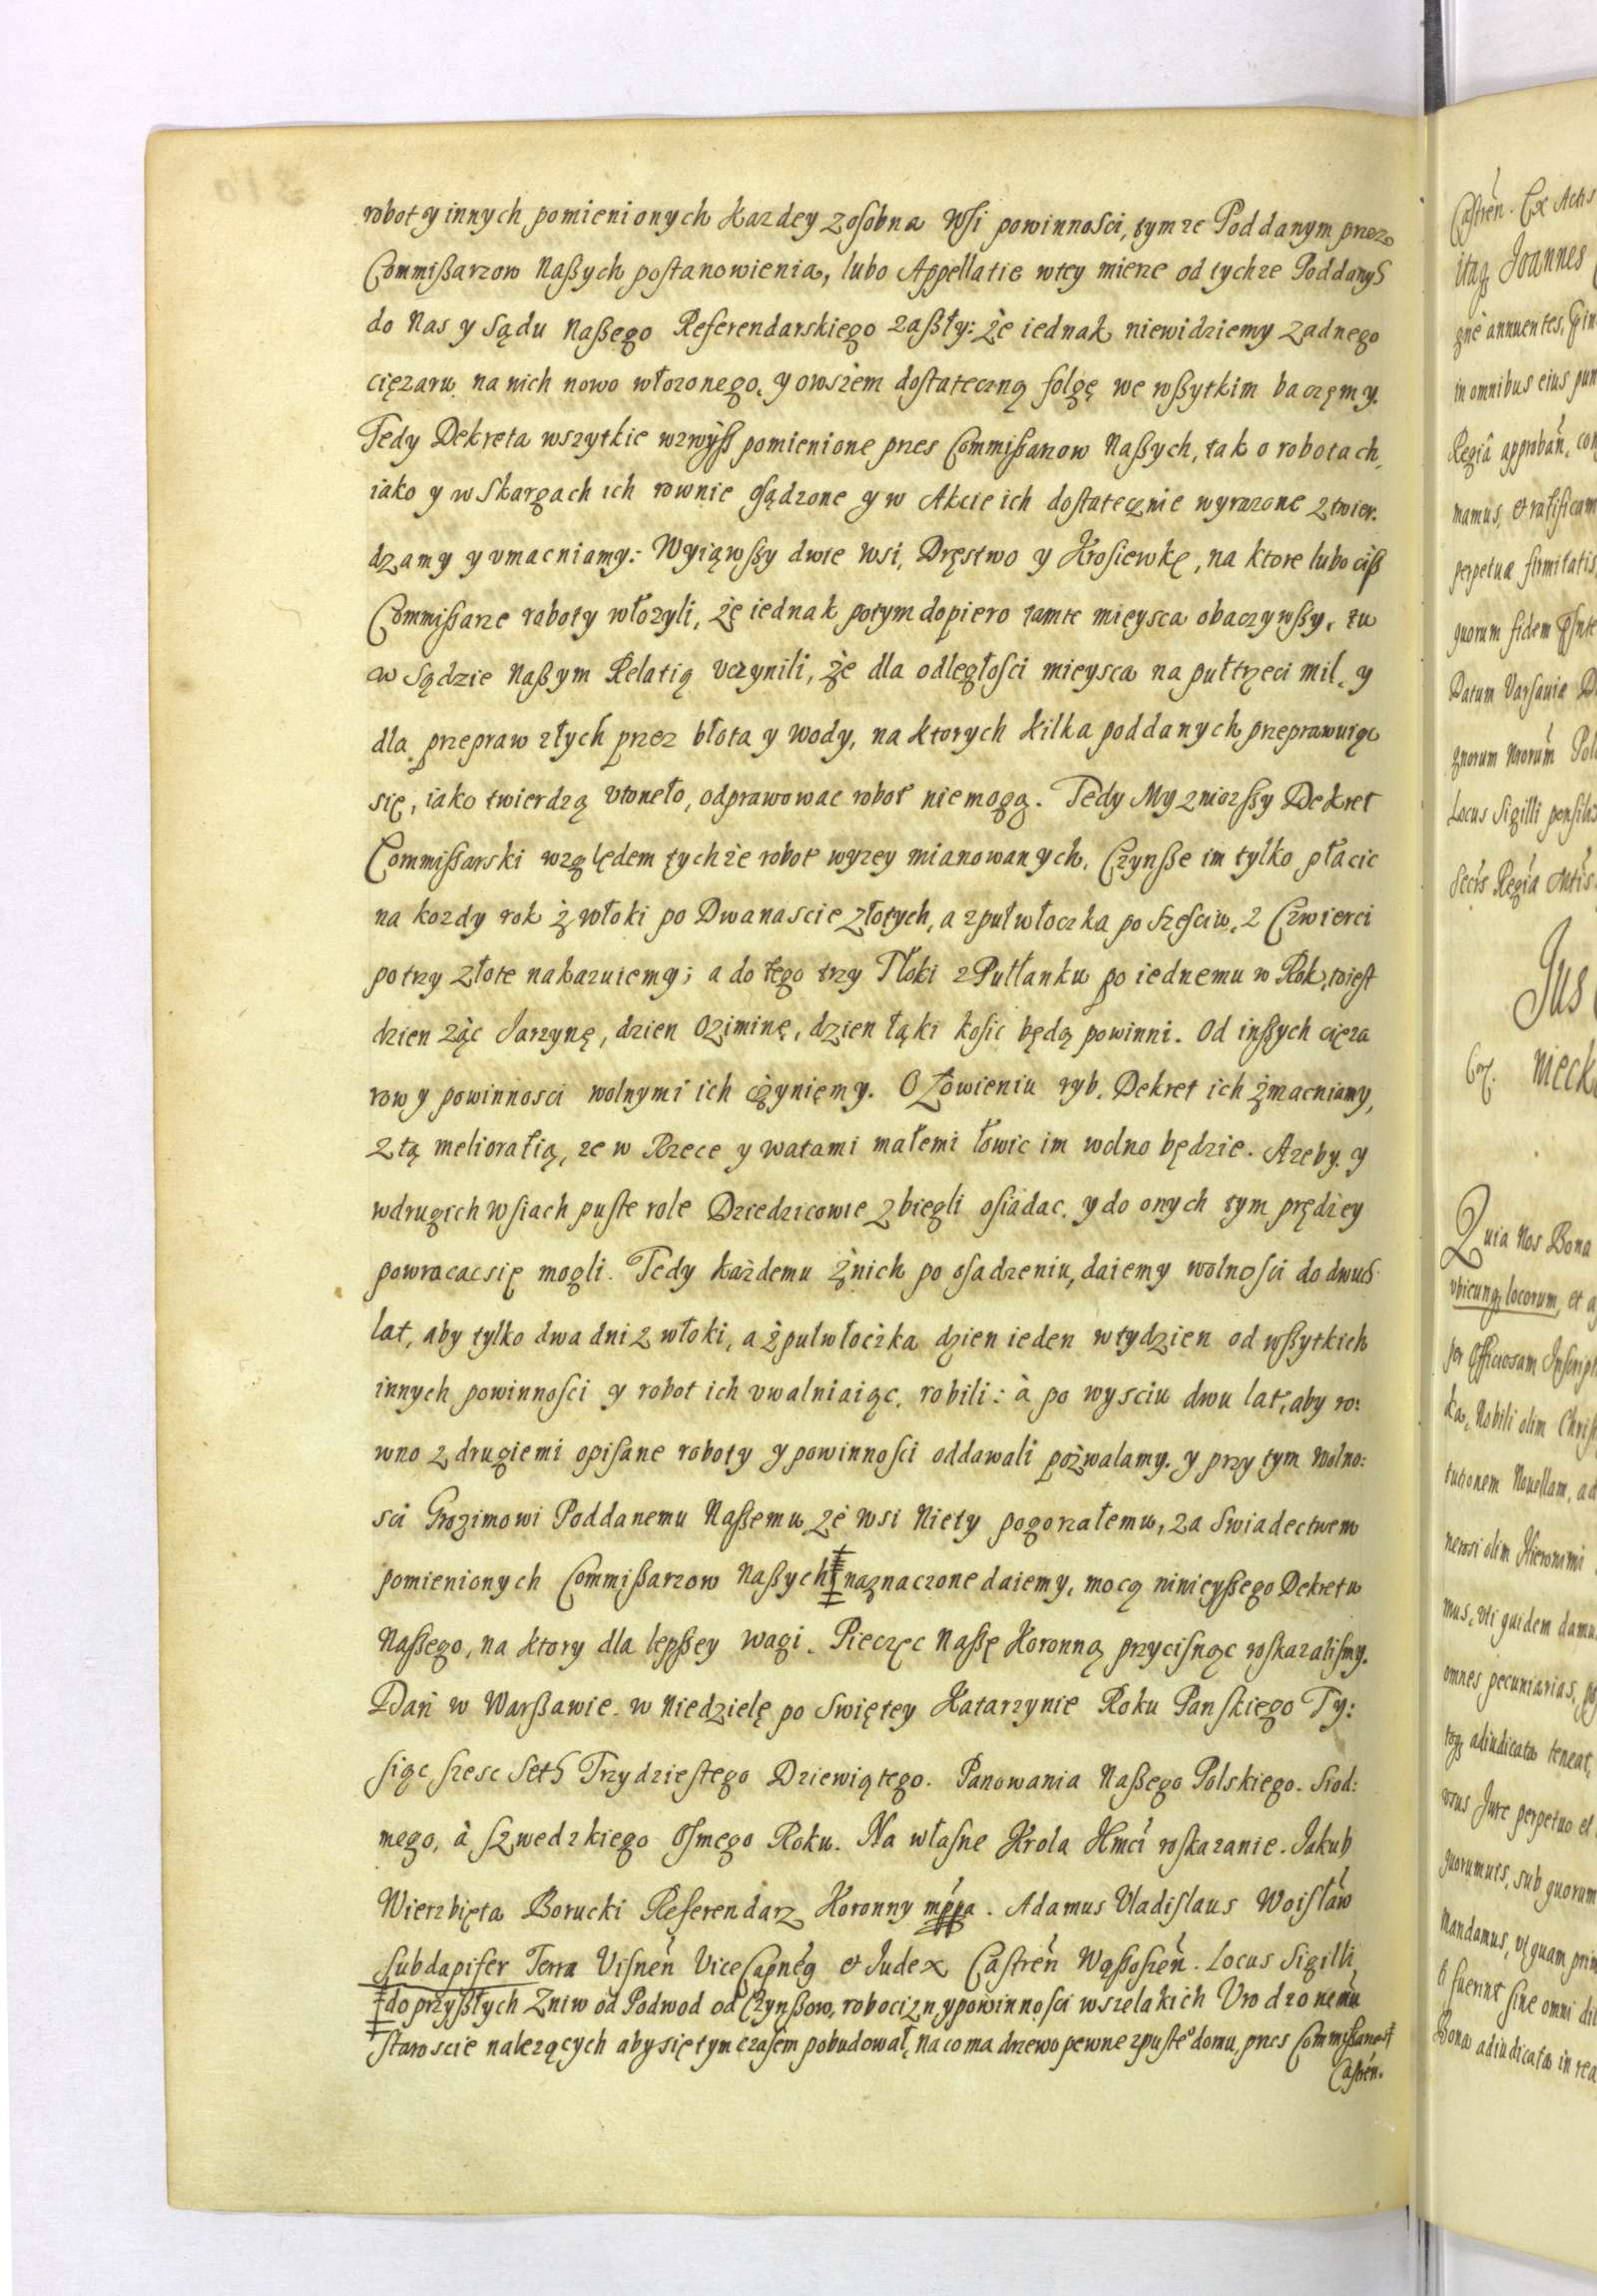 robot y innych pomienionych kazdey zosobna wsi powinnosci, tymze Poddanym przez
Commißarzow Naßych postanowienia, lubo Appellatie wtey mierze od tychze Poddanych
do Nas y Sądu Naßego Referendarskiego zaßły: że iednak niewidziemy zadnego
cięzaru na nich nowo włozonego, y owszem dostateczną folgę we wßytkim baczęmy.
Tedy Dekreta wszytkie wzwyß pomienione przes Commißarzow Naßych, tak o robotach,
iako y w Skargach ich rownie osądzone y w Akcie ich dostatecznie wyrazone ztwier.
dzamy y vmacniamy: Wyiąwßy dwie wsi, Dręstwo y Krosiewkę, na ktore lubo ciß
Commißarze roboty włozyli, że iednak potym dopiero tamte mieysca obaczywßy, tu
w Sądzie Naßym Relatią vczynili, że dla odległosci mieysca na pułtrzeci mil, y
dla przepraw złych przez błota y wody, na ktorych kilka poddanych przeprawuiąc
się, iako twierdzą vtoneło, odprawowac robot niemogą. Tedy My zniozßy Dekret
Commißarski względem tychże robot wyzey mianowanych, Czynße im tylko płacic
na kozdy rok z włoki po Dwanascie złotych, a zpułwłoczka po szesciu, z Czwierci
po trzy złote nakazuiemy; a do tego trzy Tłoki z Puttanku po iednemu w Rok, toiest
dzien ząc Jarzynę, dzien Oziminę, dzien łąki kosic będą powinni. Od inßych cięza
row y powinnosci wolnymi ich czyniemy. O łowieniu ryb, Dekret ich zmacniamy,
z tą melioratią, ze w Rzece y watami małemi łowic im wolno będzie. Azeby y
wdrugich wsiach puste role Dziedzicowie zbiegli osiadac, y do onych tym prędzey
powracac się mogli. Tedy każdemu żnich po osadzeniu, daiemy wolnosci do dwuch
lat, aby tylko dwa dni z włoki, a żpułwłoczka dzien ieden wtydzien od wßytkich
innych powinnosci y robot ich vwalniaiąc, robili: à po wysciu dwu lat, aby ro:
wno z drugiemi opisane roboty y powinnosci oddawali pozwalamy. y przy tym wolno:
sci Grozimowi Poddanemu Naßemu że wsi Niety pogorzałemu, za swiadectwem
pomienionych Commißarzow Naßych ‡ naznaczone daiemy, mocą ninieyßego Dekretu
Naßego, na ktory dla lepßey wagi. Pieczęc Naßę Koronną przycisnąc roskazalismy.
Dan w Warßawie. w Niedzielę po Swiętey Katarzynie Roku Panskiego Ty:
siąc szesc Seth Trzydziestego Dziewiątego. Panowania Naßego Polskiego. Siod:
mego, à szwedzkiego osmego Roku. Na własne Krola Jmci roskazanie. Jakub
Wierzbięta Borucki Referendarz Koronny mppa. Adamus Vladislaus Woisław
Subdapifer Terra Visnen ViceCapneg et Judex Castren Wąßoßen. Locus Sigilli
‡ do przyßłych Zniw od Podwod od Czynßow, robocizn, y powinnosci wszelakich Vrodzonemu
Staroscie nalezących aby się tym czasem pobudował, na co ma drzewo pewne zpustego domu, przes Commißarzow
Castren.
Castren. Ex Actis
itaq Joannes
gnè annuentes,
in omnibus eius pun
Regiâ approban, con
mamus, et ratificam
perpetuæ firmitatis
quorum fidem
Datum Varsaviæ D
gnorum nrorum Pol
Locus Sigilli pensilis
Secis Regiæ Mtis
Jus
nieck
Quia Nos Bona
vbicunq locorum, et a
per Officiosam Inscript
ka, Nobili olim Christ
tutionem Nouellam, ad
nerosi olim Hieronimi
mus, vti quidem damu
omnes pecuniarias, po
toq adiudicata teneat,
vrus Jure perpetuo et
quorumuis, sub quorum
Mandamus, vt quam prim
ti fuerint sine omni dil
Bona adiudicata in rea